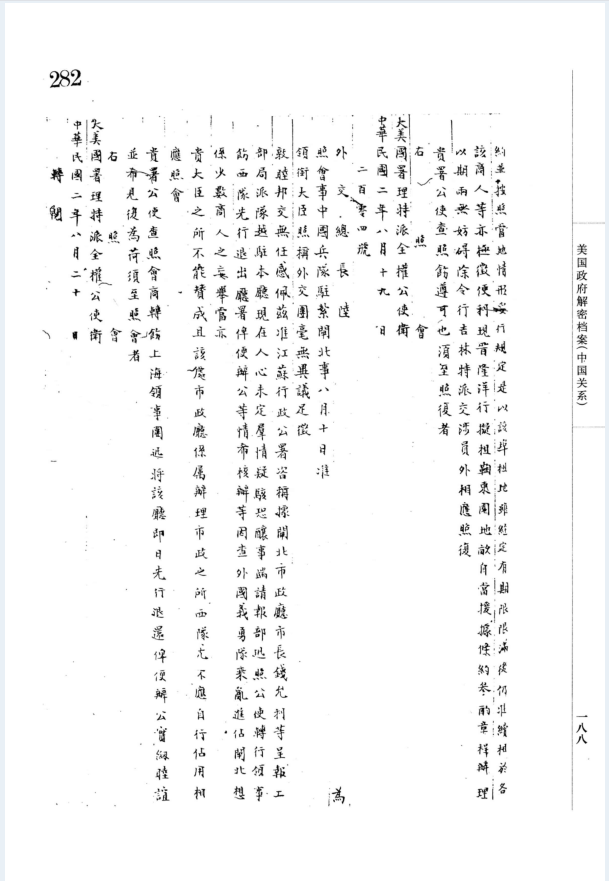 282
美国政府解密档案(中国关系)
一八八
約並按照當地情形妥行規定是以該埠租地雖經定有期限限滿後仍准續租於各
該商人等亦極徵便利現晉隆洋行擬租圍地畝自當援據條約參酌章程辦理
以期兩無妨碍除令行吉林特派交涉員外相應照復
貴署公使查照飭遵可也須至照復者
右 照 會
大美國署理特派全權公使衛
中華民國二年八月十九 日
二百零四號
外交總長陸 為
照會事中國兵隊駐紮閘北事八月十日准
領銜大臣照稱外交團毫無異議足徵
敦睦邦交無任感佩茲准江蘇行政公署咨稱據閘北市政廳市長錢允利等呈報工
部局派隊越駐本廳現在人心未定羣情疑駭恐釀事端請報部迅照公使轉行領事
飭西隊先行退出廳署俾便辦公等情希核辦等因查外國義勇隊乘亂進佔閘北想
係少數商人之妄舉當亦
貴大臣之所不能贊成且該市政廳係属辦理市政之所西隊尤不應自行佔用相
應照會
貴署公使查照會商轉飭上海領事團迅將該廳即日先行退還俾便辦公實紉睦誼
並希見復為荷須至照會者
右 照 會
大美國署理特派全權公使衛
中華民國二年八月二十 日